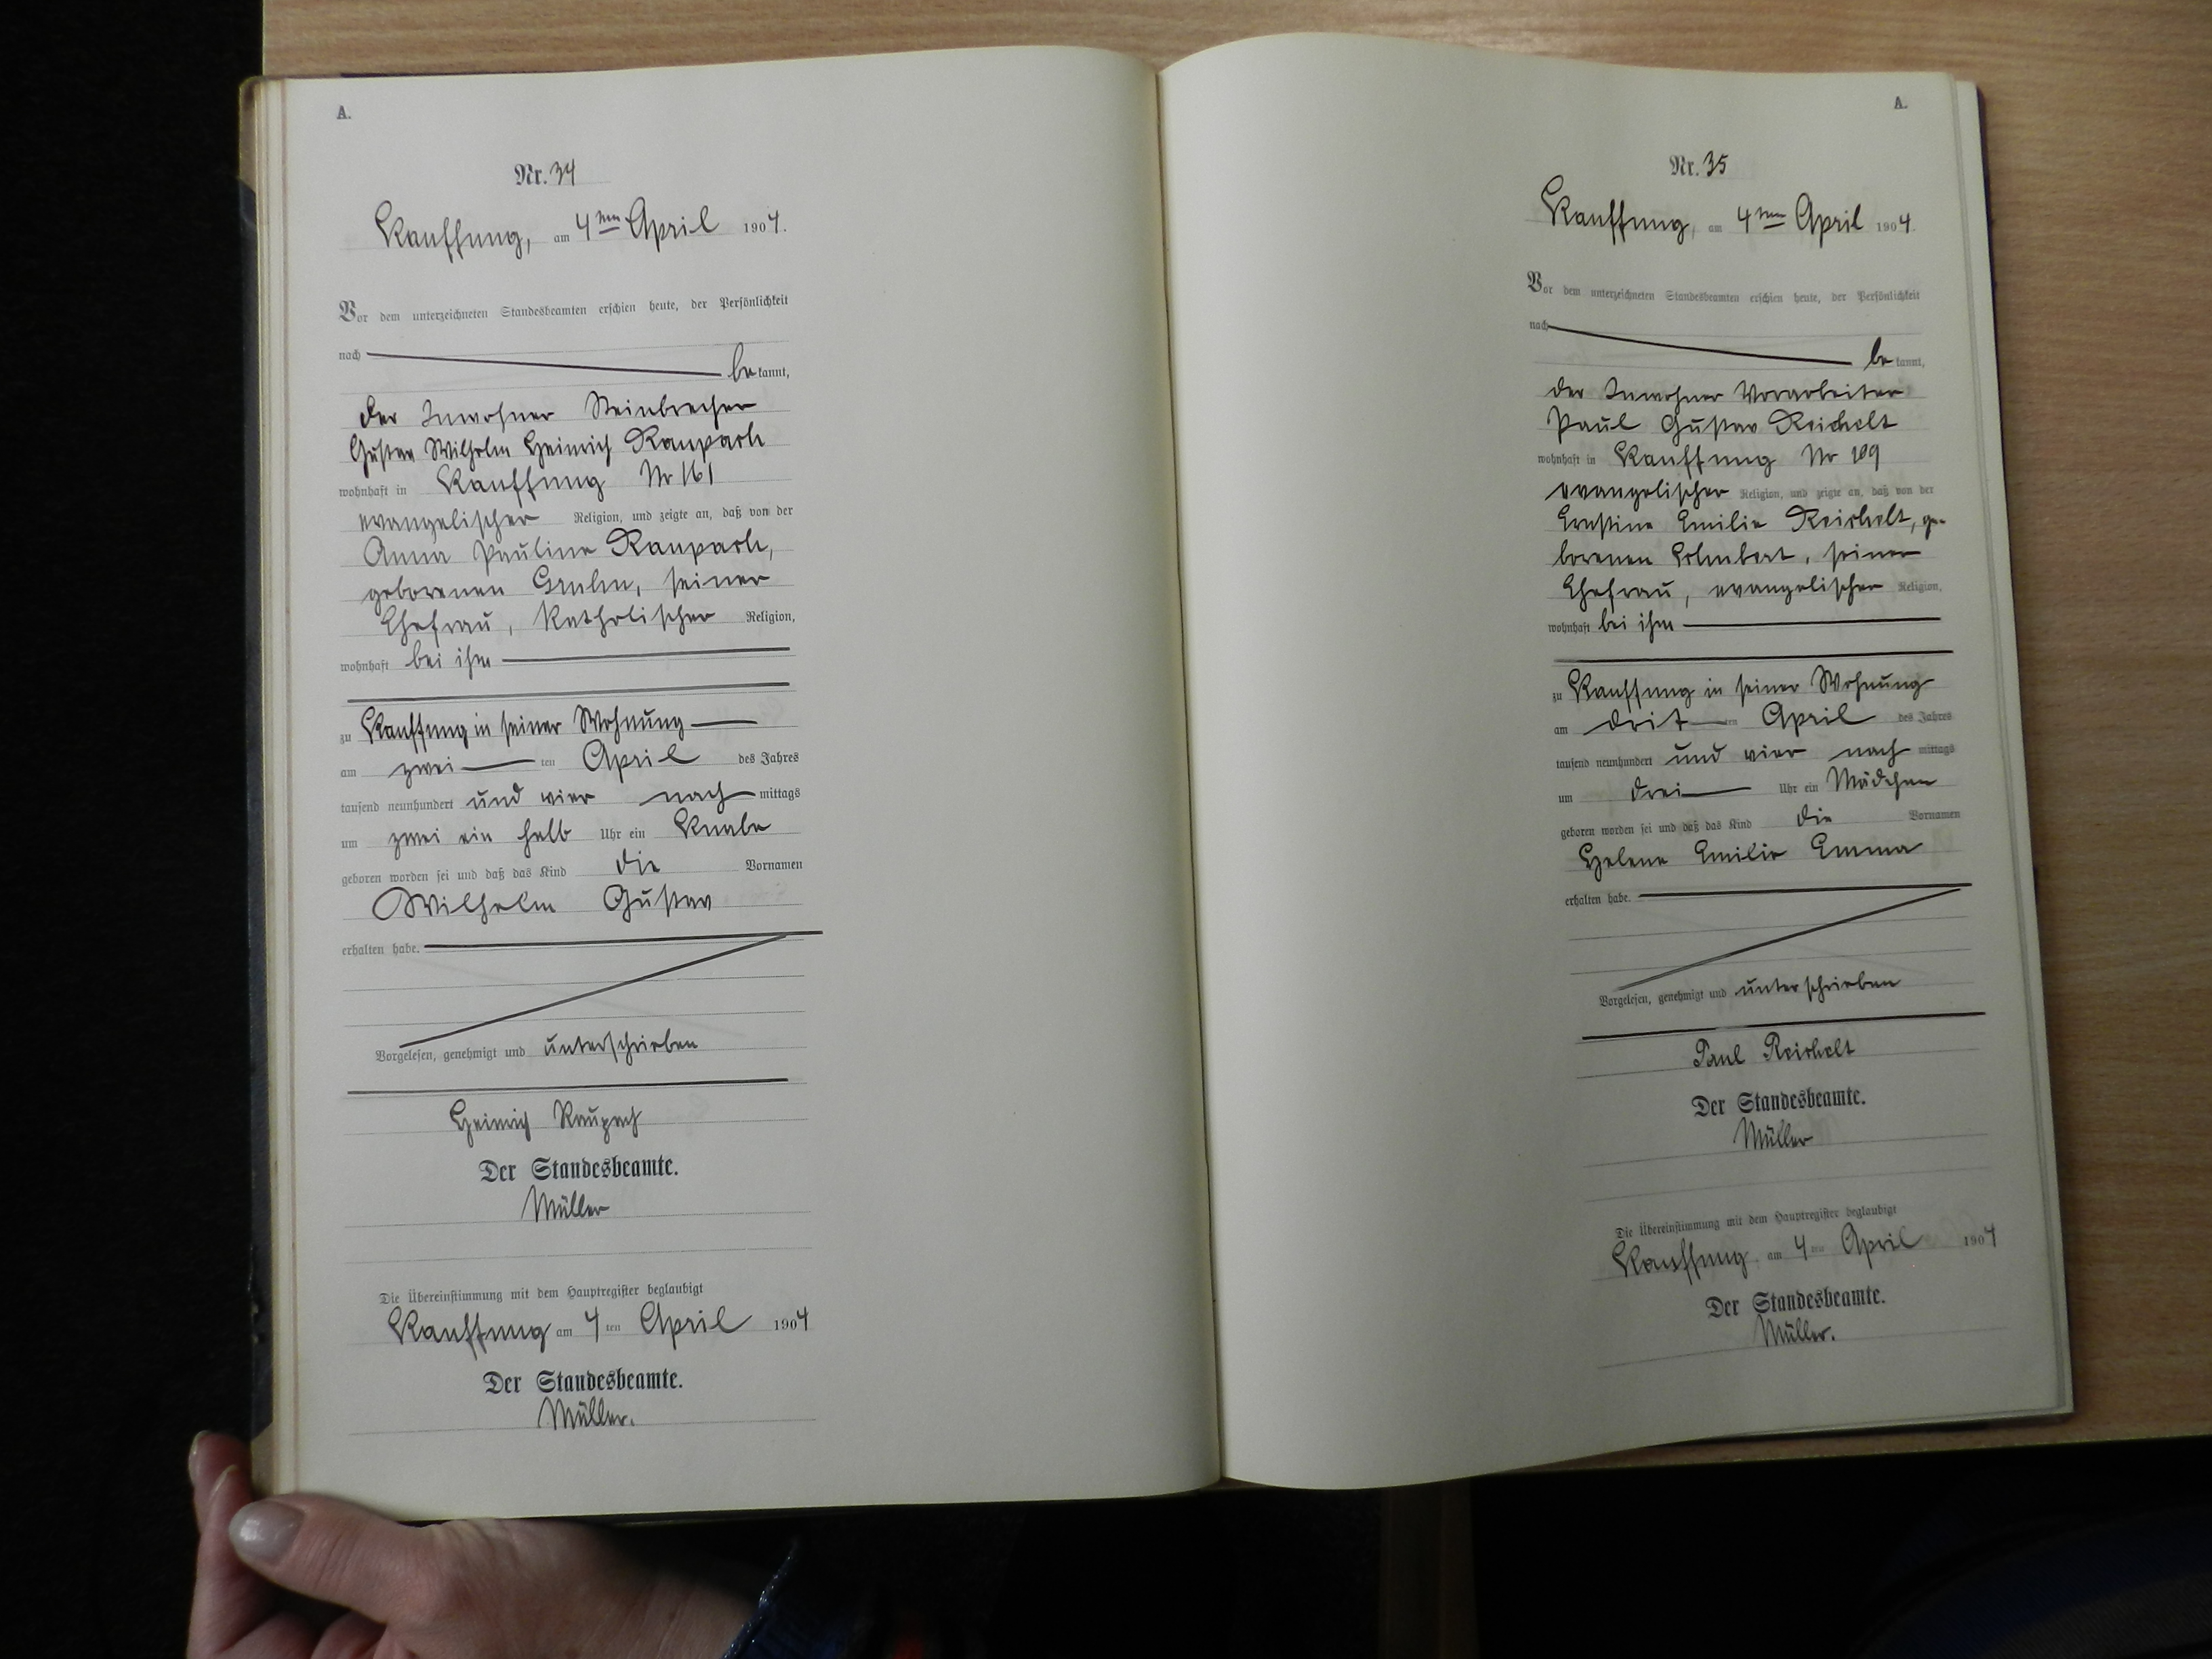 A.
Nr. 34
Kauffung, am 4ten April 1904.
Vor dem unterzeichneten Standesbeamten erschien heute, der Persönlichkeit
nach
be kannt,
der Inwohner Steinbrecher
Gustav Wilhelm Heinrich Raupach
wohnhaft in Kauffung Nr 161
evangelischer Religion, und zeigte an, daß von der
Anna Pauline Raupach,
geborenen, seiner
Ehefrau, katholischer Religion,
wohnhaft bei ihm
zu Kauffung in seiner Wohnung
am zwei ten April des Jahres
tausend neunhundert und vier nach mittags
um zwei ein halb Uhr ein Knabe
geboren worden sei und daß das Kind die Vornamen
Wilhelm Gustav
erhalten habe.
Vorgelesen, genehmigt und unterschrieben
Heinrich Raupach
Der Standesbeamte.
Müller
Die Übereinstimmung mit dem Hauptregister beglaubigt
Kauffung am 4 ten April 1904
Der Standesbeamte.
Müller.
A.
Nr. 35
Kauffung, am 4ten April 1904.
Vor dem unterzeichneten Standesbeamten erschien heute, der Persönlichkeit
nach
be kannt,
der Inwohner Vorarbeiter
Paul Gustav Reichelt
wohnhaft in Kauffung Nr 109
evangelischer Religion, und zeigte an, daß von der
Ernestine Emilie Reichelt, ge-
borenen, seiner
Ehefrau, evangelischer Religion,
wohnhaft bei ihm
zu Kauffung in seiner Wohnung
am drit ten April des Jahres
tausend neunhundert und vier nach mittags
um drei Uhr ein Mädchen
geboren worden sei und daß das Kind die Vornamen
Helene Emilie Emma
erhalten habe.
Vorgelesen, genehmigt und unterschrieben
Paul Reichelt
Der Standesbeamte.
Müller
Die Übereinstimmung mit dem Hauptregister beglaubigt
Kauffung am 4 ten April 1904
Der Standesbeamte.
Müller.